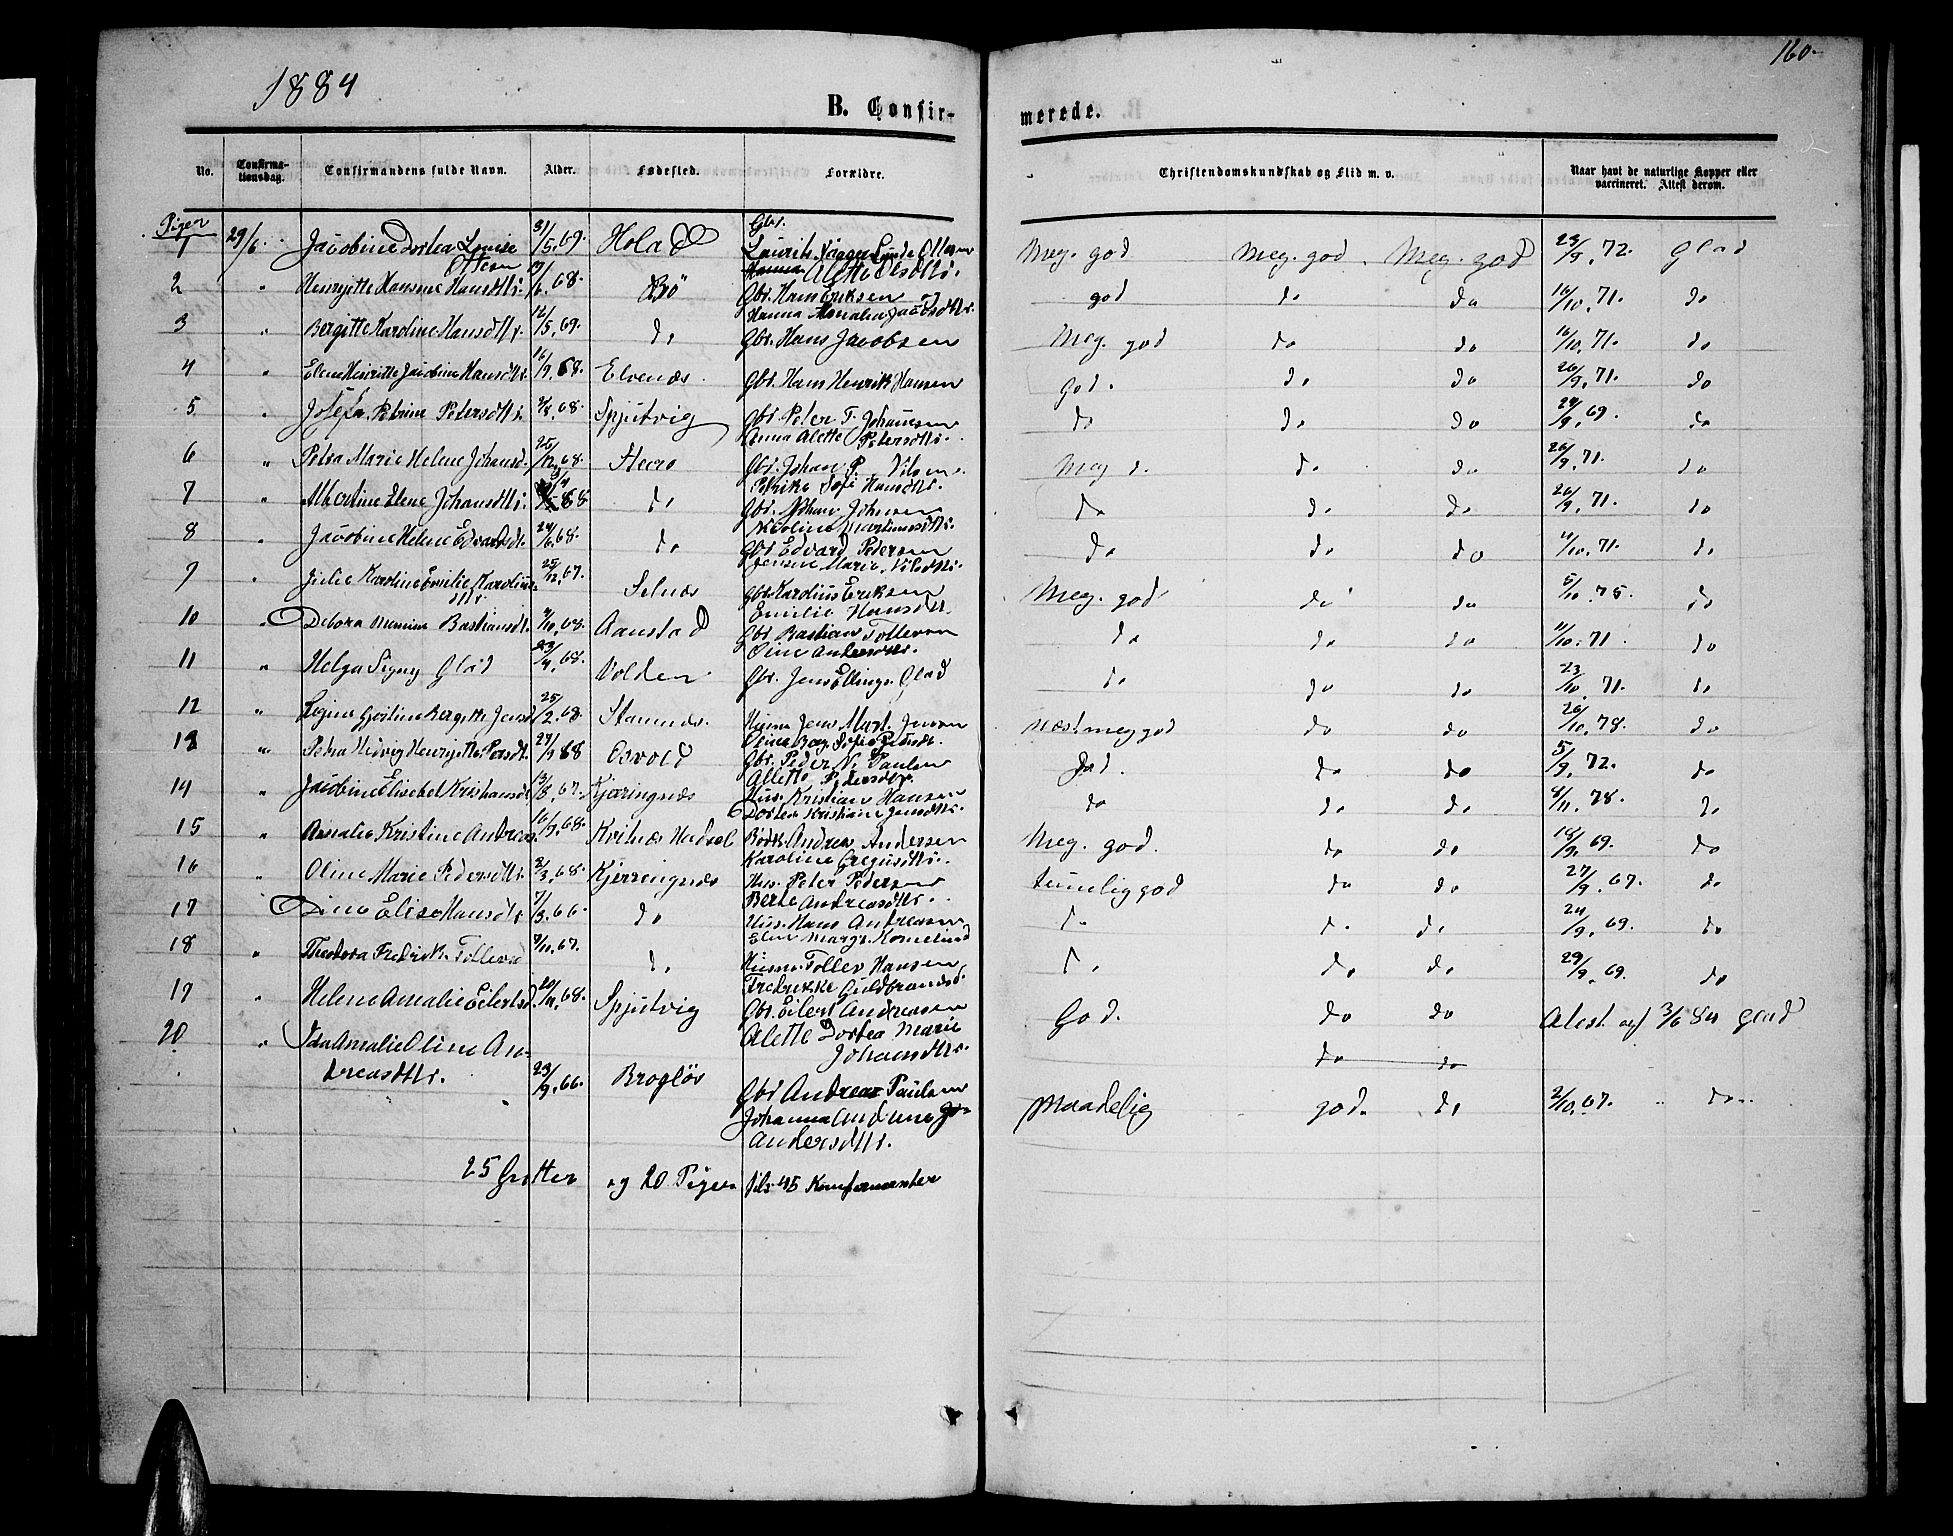 1884
160
B. Confir-
merede.
No.
Confirma-
tionsdag.
Confirmandens fulde Navn.
Alder.
Fødested.
Forældre.
Christendomskundskab og Flid m. v.
Naar havt de naturlige Kopper eller
vaccineret. Attest derom.
Piger
1 29/6 Jacobine Dortea Louise Ottesen 31/5 69. Holand Gbr. Laurits Ottesen Alette Olsdttr. Meg. god Meg. god Meg. god 23/9. 72. Glad
2 " Henrijette Hansine Hansdttr. 68. Bö Gbr. Hans Eriksen og Hanna Amalia Jacobsdttr. god do do 16/10. 71. do
3 " Bergitte Karoline Hansdttr. 12/5. 69. do Gbr. Hans Jacobsen Meg. god do do 16/10. 71. do
4 " Elene Henritte Jacobine Hansdttr. 16/9. 68. Elvenæs Gbr. Hans Henrik Hansen god. do do 26/9. 71. do
5 " Josefa Petrine Petersdttr. 68. Spjutvig Gbr. Peter F. Johansen Anna Alette Petersdttr. do do do 24/9. 69. do
6 " Petra Marie Helene Johansd. 26/12 68. Steiro Gbr. Johan P. Nilsen Petrike Sofi Hansdttr. Meg d. do do 26/9. 71. do
7 " Albertine Elene Johansdttr. 68 do Gbr. Johan Johnsen Nicoline Martinusdttr. do do do 26/9. 71. do
8 " Jacobine Helene Edvardsdt. 24/6. 68. do Gbr. Edvard Pedersen Jensine Marie Nilsdttr. do do do 11/10. 71. do
9 " Julie Karoline Emilie Karolius dttr. 25/12. 67. Selnæs Gbr. Karolius Eriksen Emilie Hansdttr. Meg. god do do 5/10. 75. do
10 " Debora Bastiansdt. 68. Aanstad Gbr. Bastian Tollevsen Oline Andersdttr. do do do 11/10. 71. do
11 " Helga Signy Glad 23/4. 68. Volden Gbr. Jens Ellings. Glad do do do 23/10. 71. do
12 " Regine Gjertine Bergitte Jensd. 25/2. 68. Stamnes. Husm Jens Mart. Jensen Oline Berg. Sofie næst meg god do do 26/10. 78. do
13 " Petra Hedvig Henrijette Persdt. 68 Osvold Gbr. Peder N. Paulsen Alette Pedersdttr. god. do do 5/9. 72. do
14 " Jacobine Elisebet Kristiansdt. 13/8. 67. Kjæringnæs Hus. Kristian Hansen Dortea Kristiane Jensdttr. do do do 8/11. 78. do
15 " Amalie Kristine Andreas. 16/9. 68. Kvitnæs Hadsel Andreas Andersen Karoline Gregusdttr. Meg. god. do do 18/9. 69. do
16 " Oline Marie Pedersdttr. 2/3. 68. Kjerringnæs Hus. Peter Pedersen Berte Andreasdttr. temelig god do do 27/9. 67. do
17 " Dina Elise Hansdttr. 66. do Hus. Hans Andreasen Elen Margr. Kornelius d do do do 24/9. 69. do
18 " Theodora Fredrik. Tollevsd 67. do Husm. Tollev Hansen Fredrikke Guldbrandsd. do do do 29/9. 69. do
19 " Helene Amalie Eilertsd. 68. Spjutvig Gbr. Eilert Andreasen Alette Dortea Marie Johansdttr. God. do do Atest. af 3/6 84 Glad
do do
20 " Ida Amalie Oline An-
dreasdttr. 23/9. 66. Brogløs Gbr Andreas Paulsen Johanna Andersdttr. Maadelig god. do 2/10. 67. do
25 Gutter og 20 Piger tils 45 Konfirmanter